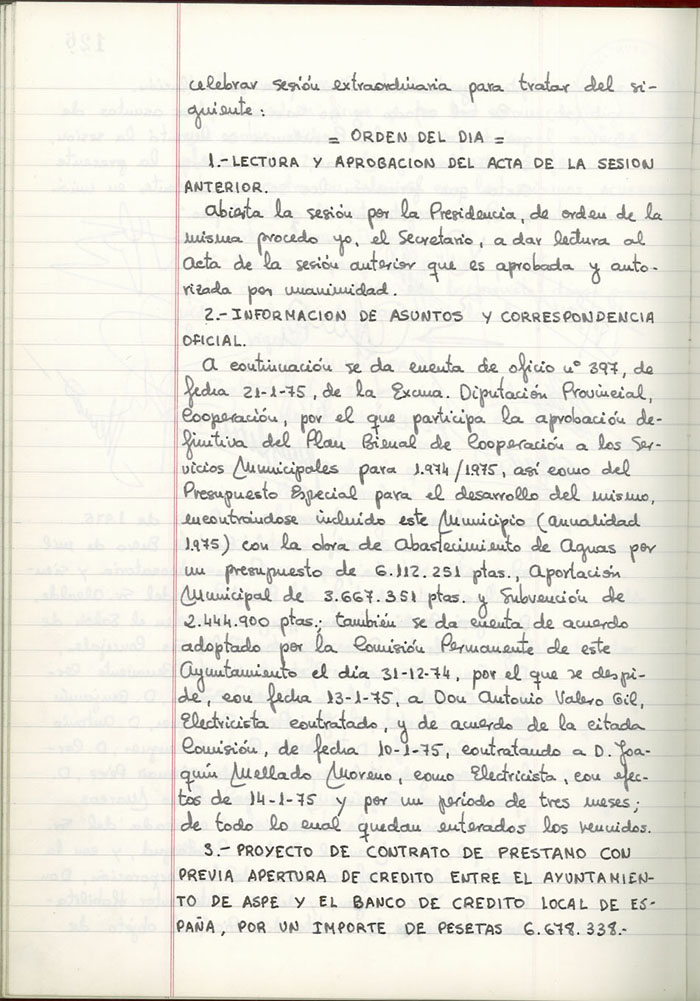 celebrar sesión extraordinaria para tratar del si-
guiente:
= ORDEN DEL DIA =
1.- LECTURA Y APROBACION DEL ACTA DE LA SESION
ANTERIOR.
Abierta la sesión por la Presidencia, de orden de la
misma procedo yo, el Secretario, a dar lectura al
Acta de la sesión anterior que es aprobada y auto-
rizada por unanimidad.
2.- INFORMACION DE ASUNTOS Y CORRESPONDENCIA
OFICIAL.
A continuación se da cuenta de oficio nº 397, de
fecha 21-1-75, de la Excma. Diputación Provincial,
Cooperación, por el que participa la aprobación de-
finitiva del Plan Bienal de Cooperación a los Ser-
vicios Municipales para 1.974/1975, así como del
Presupuesto Especial para el desarrollo del mismo,
encontrándose incluido este Municipio (anualidad
1.975) con la obra de Abastecimiento de Aguas por
un presupuesto de 6.112.251 ptas., Aportación
Municipal de 3.667.351 ptas. y Subvención de
2.444.900 ptas.; también se da cuenta de acuerdo
adoptado por la Comisión Permanente de este
Ayuntamiento el día 31-12-74, por el que se despi-
de, con fecha 13-1-75, a Don Antonio Valero Gil,
Electricista contratado, y de acuerdo de la citada
Comisión, de fecha 10-1-75, contratando a D. Joa-
quín Mellado Moreno, como Electricista, con efec-
tos de 14-1-75 y por un período de tres meses;
de todo lo cual quedan enterados los reunidos.
3.- PROYECTO DE CONTRATO DE PRESTAMO CON
PREVIA APERTURA DE CREDITO ENTRE EL AYUNTAMIEN-
TO DE ASPE Y EL BANCO DE CREDITO LOCAL DE ES-
PAÑA, POR UN IMPORTE DE PESETAS 6.678.338.-